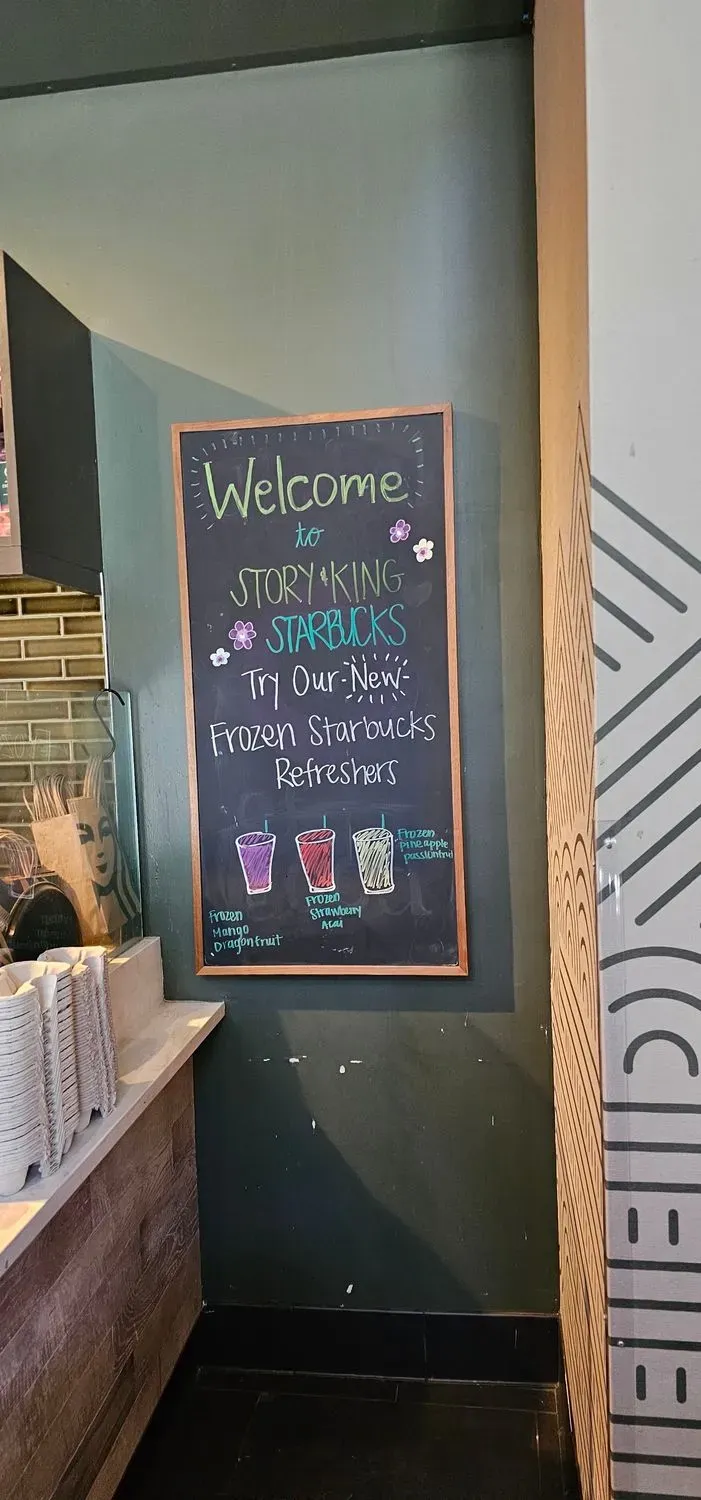 Welcome
to
STORY & KING
STARBUCKS
Try Our -New-
Frozen Starbucks
Refreshers
Frozen
Mango
Dragonfruit
Frozen
Strawberry
Acai
Frozen
pineapple
passionfruit